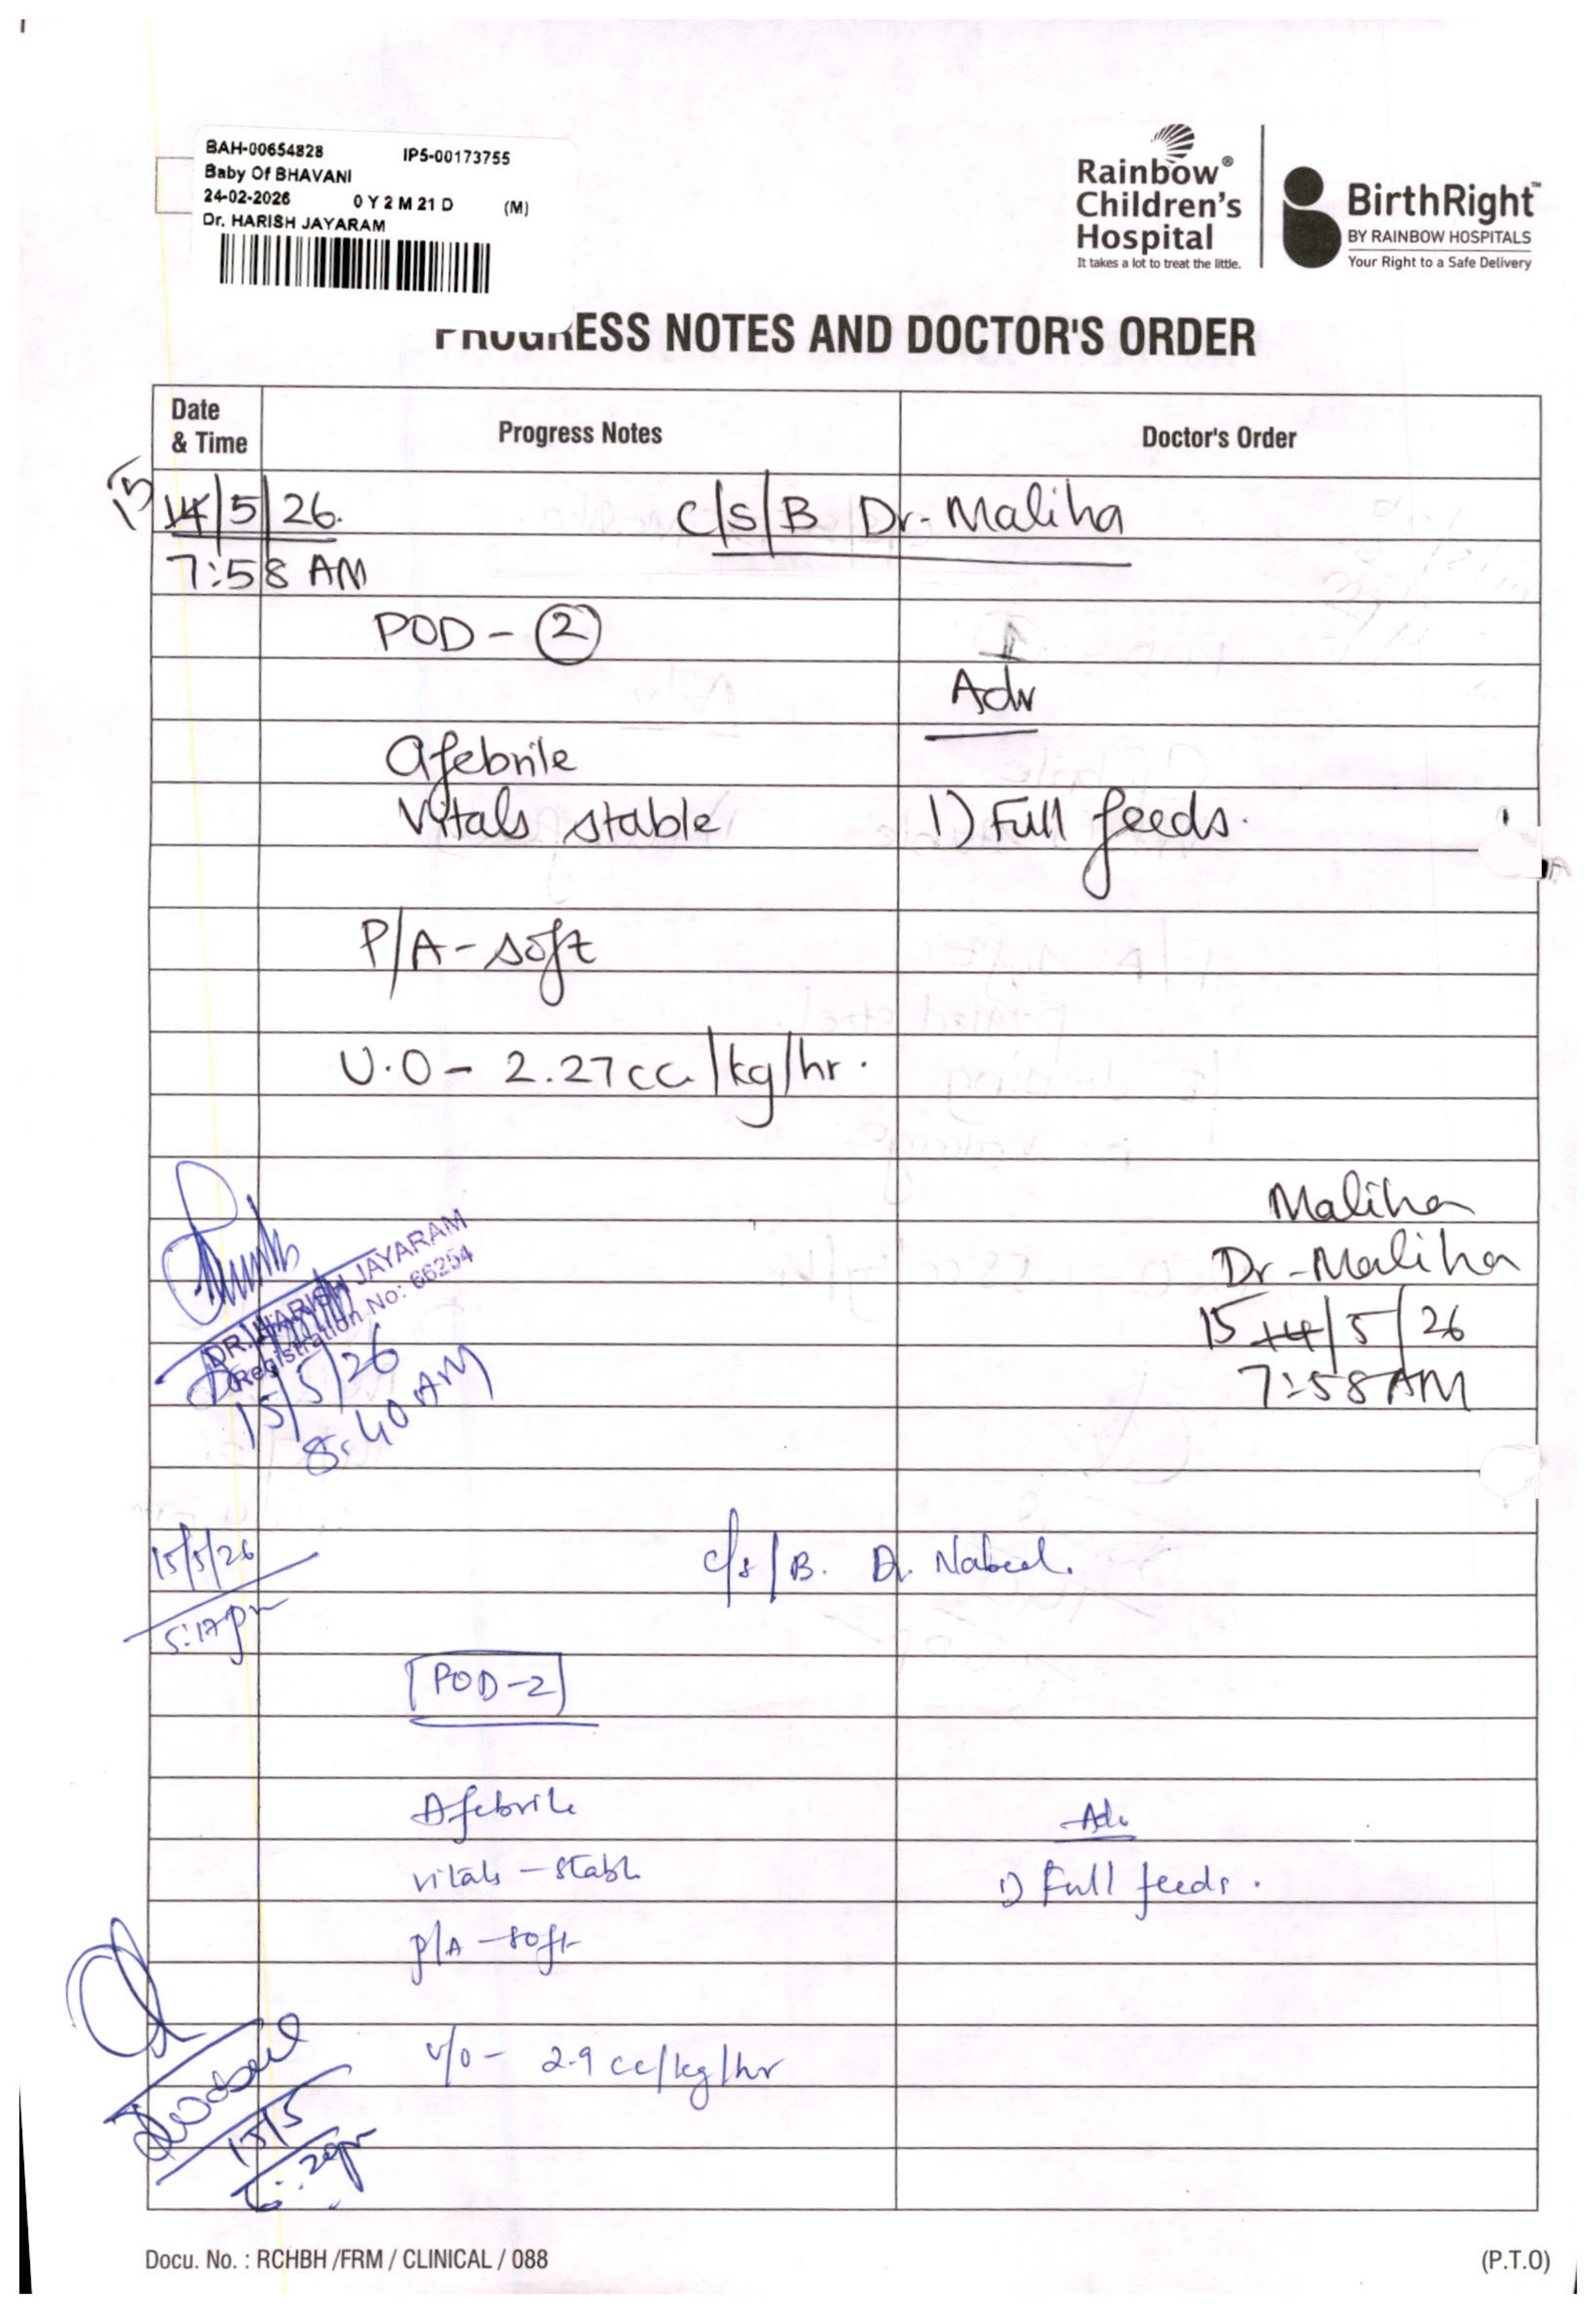 BAH-00654828 IP5-00173755
Baby Of BHAVANI
24-02-2026 0 Y 2 M 21 D (M)
Dr. HARISH JAYARAM
Rainbow®
Children's
Hospital
It takes a lot to treat the little.
BirthRight™
BY RAINBOW HOSPITALS
Your Right to a Safe Delivery
PROGRESS NOTES AND DOCTOR'S ORDER
Date
& Time
Progress Notes
Doctor's Order
15 14/5/26. C/S/B Dr. Maliha
7:58 AM
POD - 2
Adv
Afebrile
Vitals stable 1) Full feeds.
P/A - soft
U.O - 2.27cc/kg/hr.
Maliha
Dr - Maliha
15 14/5/26
7:58 AM
DR. HARISH JAYARAM
Registration No: 66254
15/5/26
8:40 AM
15/5/26 c/s/B. Dr. Nabeel.
5:17pm
POD-2
Afebrile Adv
vitals - stable
1) Full feeds.
P/A - soft
u/o - 2.9 cc/kg/hr
15/5
Docu. No. : RCHBH /FRM / CLINICAL / 088 (P.T.O)